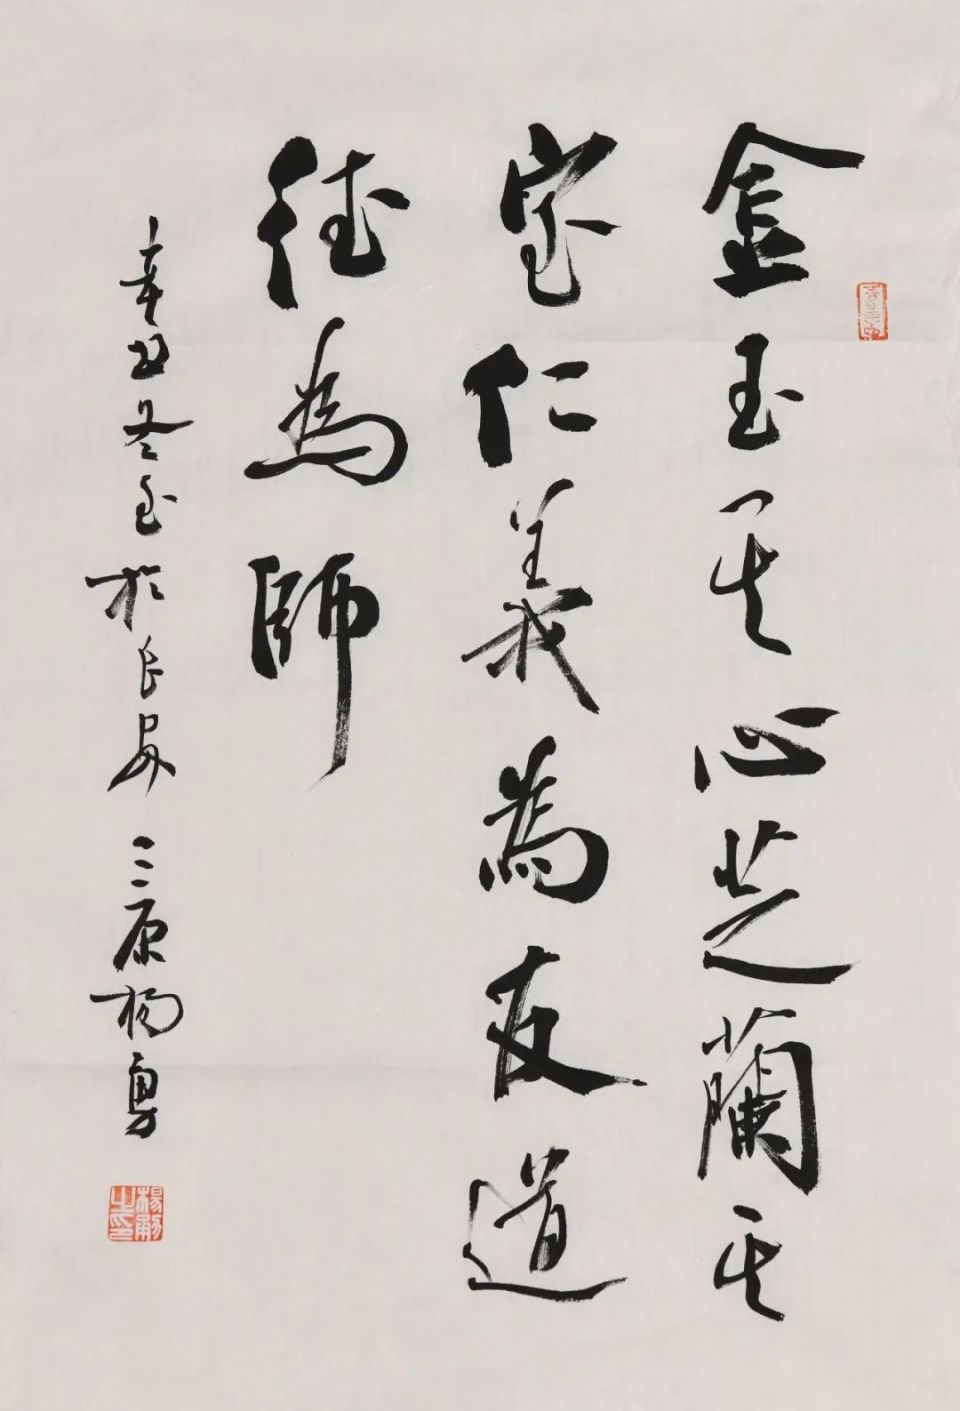 金玉其心芝蘭其
室仁義為友道
德為師
辛丑冬至於長安 三原楊勇
楊勇之印